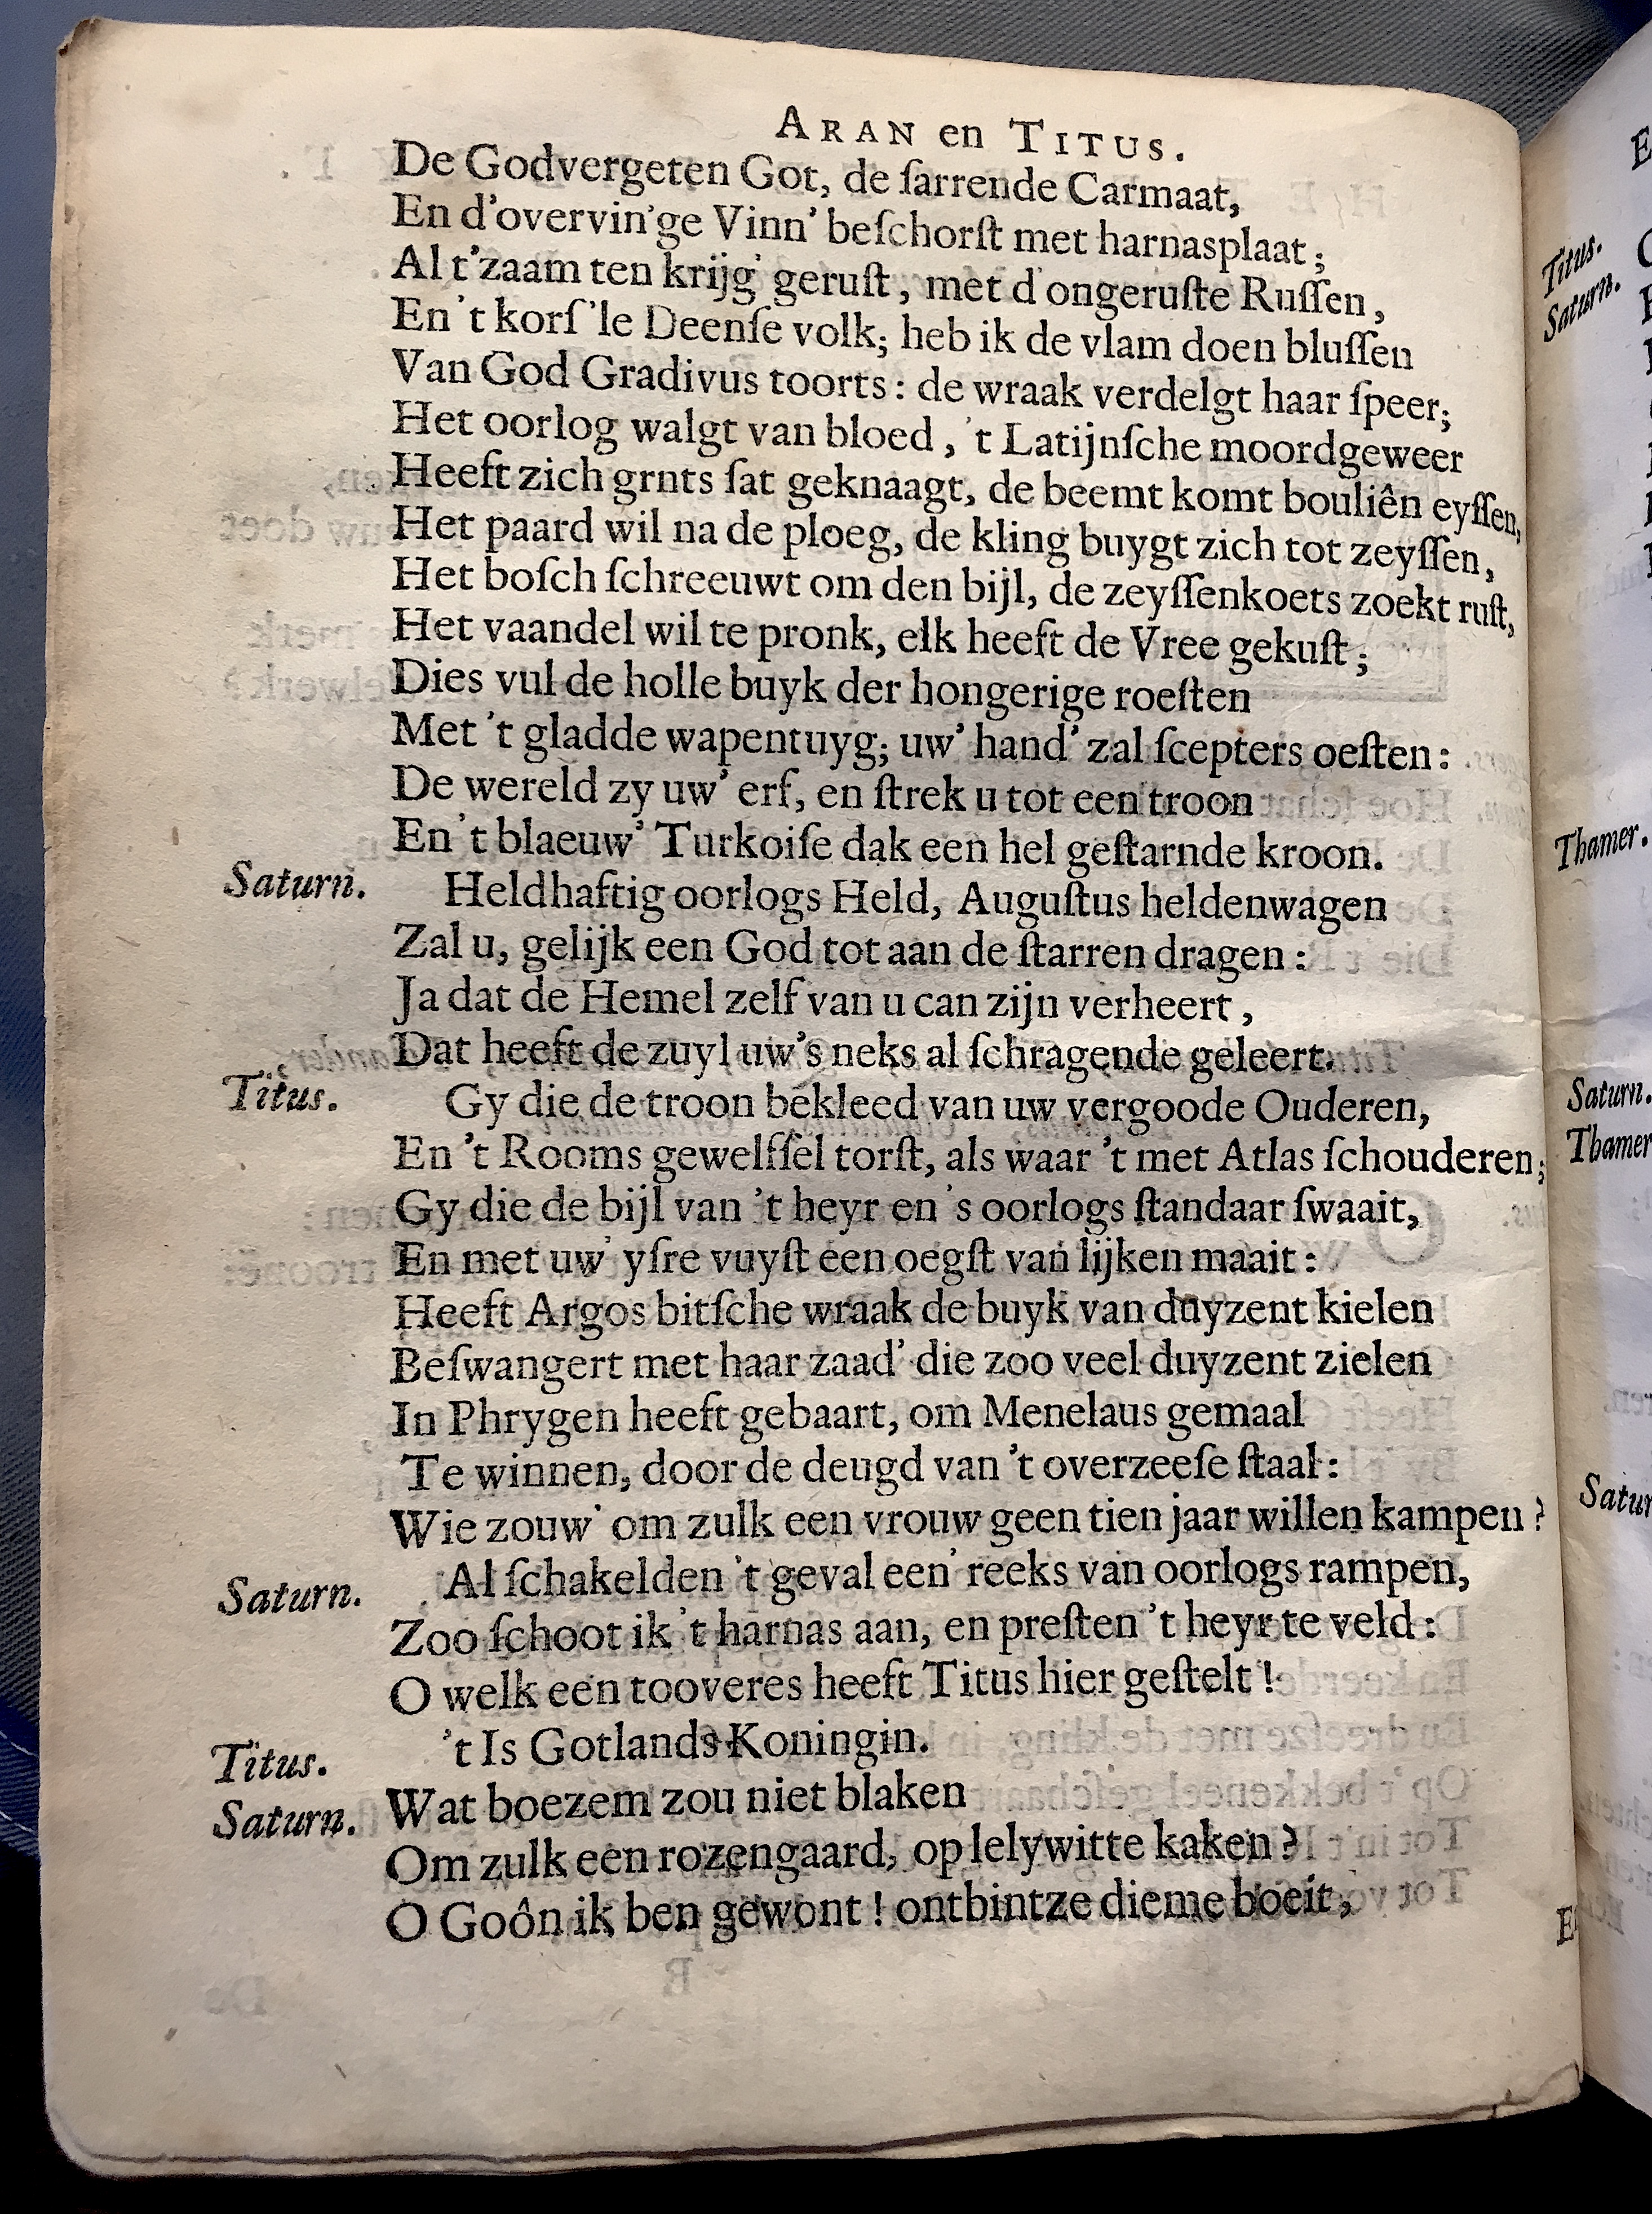 ARAN en TITUS.
De Godvergeten Got, de ſarrende Carmaat,
En d'overvin'ge Vinn' beſchorſt met harnasplaat;
Al t'zaam ten krijg' geruſt, met d'ongeruſte Ruſſen,
En 't korſ'le Deenſe volk; heb ik de vlam doen bluſſen
Van God Gradivus toorts: de wraak verdelgt haar ſpeer;
Het oorlog walgt van bloed, 't Latijnſche moordgeweer
Heeft zich grnts ſat geknaagt, de beemt komt bouliên eyſſen,
Het paard wil na de ploeg, de kling buygt zich tot zeyſſen,
Het boſch ſchreeuwt om den bijl, de zeyſſenkoets zoekt ruſt,
Het vaandel wil te pronk, elk heeft de Vree gekuſt;
Dies vul de holle buyk der hongerige roeſten
Met 't gladde wapentuyg; uw' hand' zal ſcepters oeſten:
De wereld zy uw' erf, en ſtrek u tot een troon
En 't blaeuw' Turkoiſe dak een hel geſtarnde kroon.
Saturn. Heldhaftig oorlogs Held, Auguſtus heldenwagen
Zal u, gelijk een God tot aan de ſtarren dragen:
Ja dat de Hemel zelf van u can zijn verheert,
Dat heeft de zuyl uw's neks al ſchragende geleert.
Titus. Gy die de troon bekleed van uw vergoode Ouderen,
En 't Rooms gewelfſel torſt, als waar 't met Atlas ſchouderen;
Gy die de bijl van 't heyr en 's oorlogs ſtandaar ſwaait,
En met uw' yſre vuyſt een oegſt van lijken maait:
Heeft Argos bitſche wraak de buyk van duyzent kielen
Beſwangert met haar zaad' die zoo veel duyzent zielen
In Phrygen heeft gebaart, om Menelaus gemaal
Te winnen, door de deugd van 't overzeeſe ſtaal:
Wie zouw' om zulk een vrouw geen tien jaar willen kampen?
Saturn. Al ſchakelden 't geval een' reeks van oorlogs rampen,
Zoo ſchoot ik 't harnas aan, en preſten 't heyr te veld:
O welk een tooveres heeft Titus hier geſtelt!
Titus. 't Is Gotlands Koningin.
Saturn. Wat boezem zou niet blaken
Om zulk een rozengaard, op lelywitte kaken?
O Goôn ik ben gewont! ontbintze die me boeit,
Titus.
Saturn.
Thamer.
Saturn.
Thamer
Satur